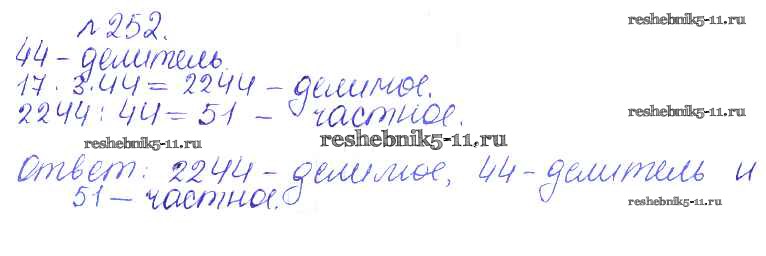 №252.
reshebnik5-11.ru
44 - делитель.
17 · 3 · 44 = 2244 - делимое.
2244 : 44 = 51 - частное.
reshebnik5-11.ru
reshebnik5-11.ru
reshebnik5-11.ru
Ответ: 2244 - делимое, 44 - делитель и
51 - частное.
reshebnik5-11.ru